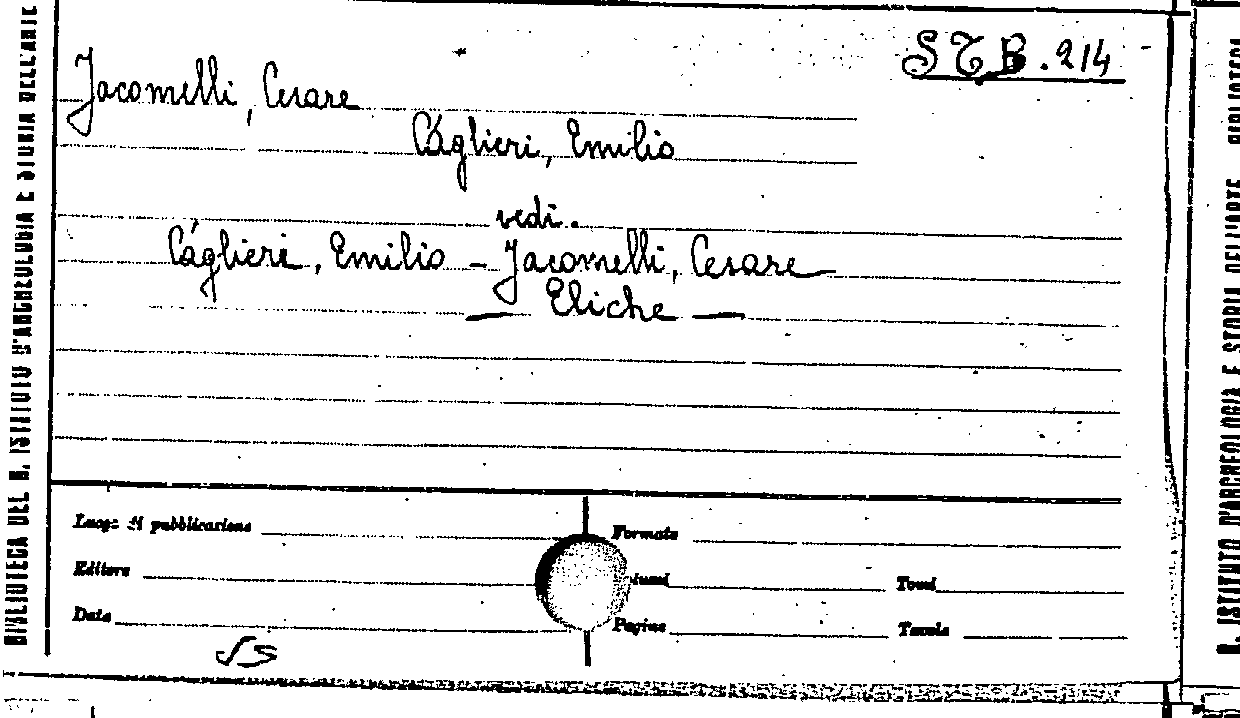 STB.214
Jacomelli, Cesare
Cáglieri, Emilio
vedi.
Cáglieri, Emilio – Jacomelli, Cesare
— Eliche —
Luogo di pubblicazione
Formato
Editore
Tomi
Data
Pagine
Tavole
BIBLIOTECA DEL R. ISTITUTO D'ARCHEOLOGIA E STORIA DELL'ARTE
R. ISTITUTO D'ARCHEOLOGIA E STORIA DELL'ARTE BIBLIOTECA